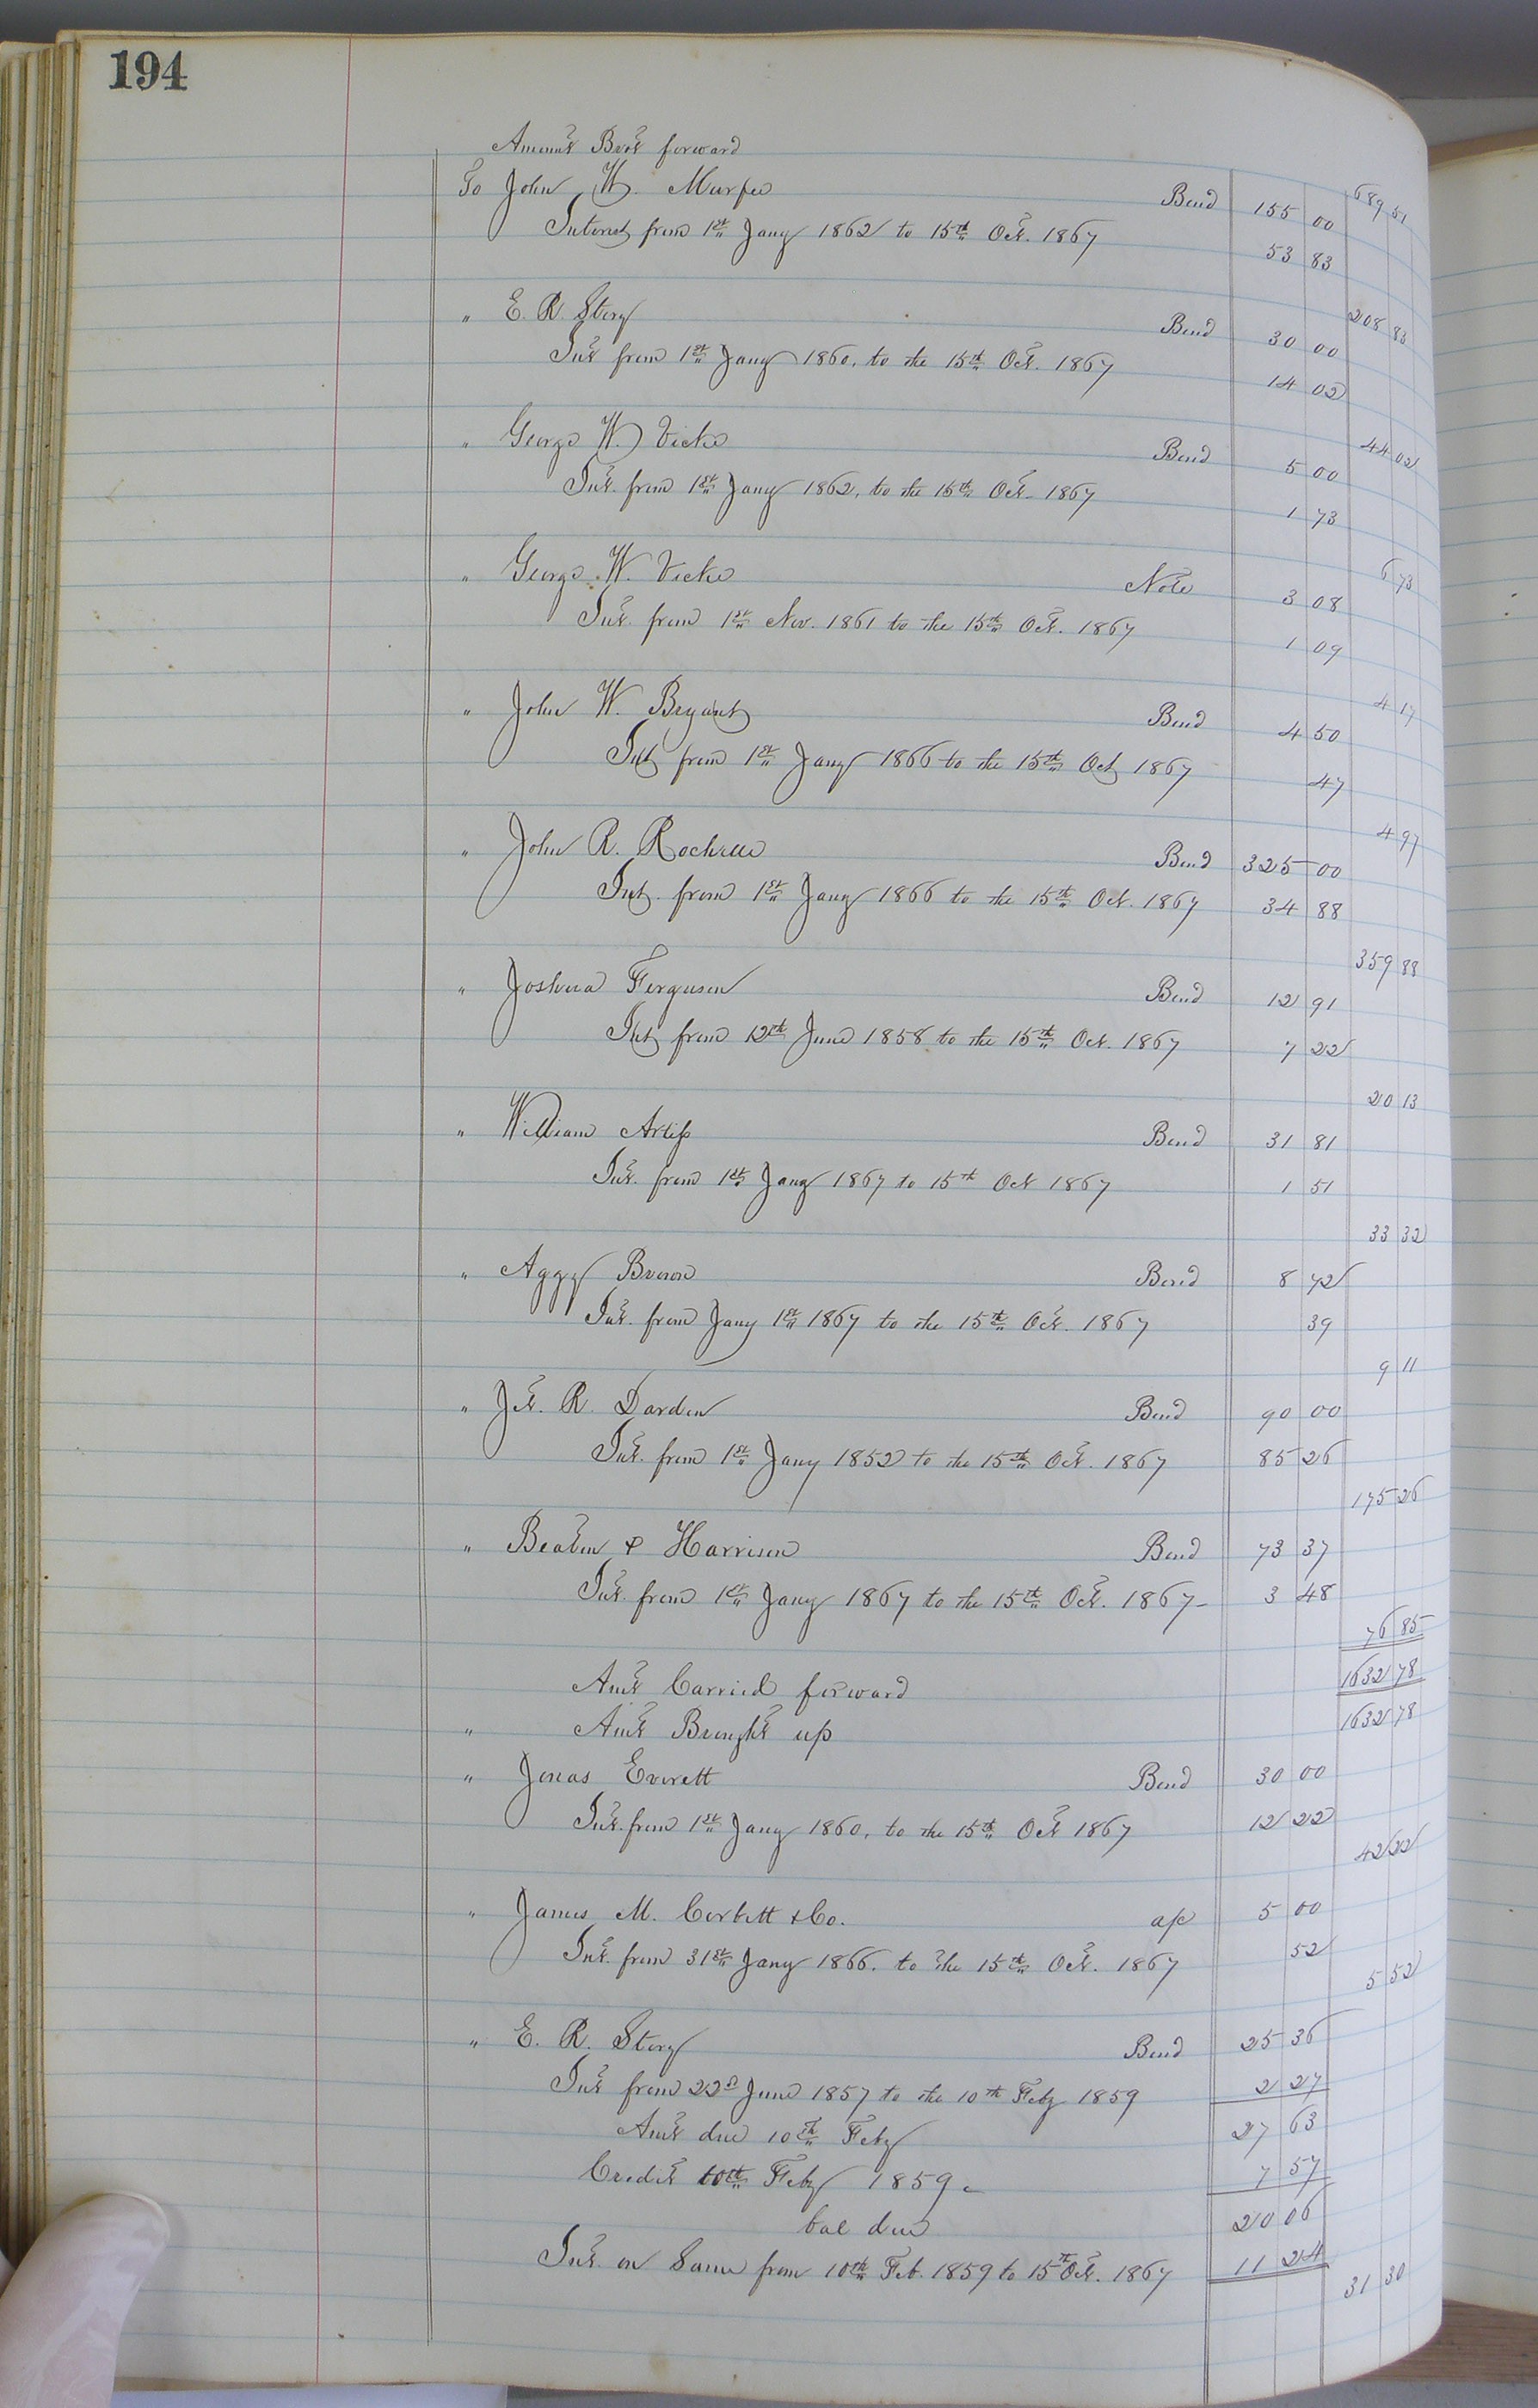 194
Amount Brot forward 689 51
To John W. Murfee Bond 155 00
Interest from 1st Jany 1862 to 15th Oct. 1867 53 83
208 83
" E. R. Story Bond 30 00
Int from 1st Jany 1860, to the 15th Oct. 1867 14 02
44 02
" George W. Vicks Bond 5 00
Int. from 1st Jany 1862, to the 15th Oct. 1867 1 73
6 73
" George W. Vicks Note 3 08
Int. from 1st Nov. 1861 to the 15th Oct. 1867 1 09
4 17
" John W. Bryant Bond 4 50
Int from 1st Jany 1866 to the 15th Oct 1867 47
4 97
" John R. Rochelle Bond 325 00
Int. from 1st Jany 1866 to the 15th Oct. 1867 34 88
359 88
" Joshua Ferguson Bond 12 91
Int from 12th June 1858 to the 15th Oct. 1867 7 22
20 13
" William Artis Bond 31 81
Int. from 1st Jany 1867 to 15th Oct 1867 1 51
33 32
" Aggy Brown Bond 8 72
Int. from Jany 1st 1867 to the 15th Oct. 1867 39
9 11
" Jet. R. Darden Bond 90 00
Int. from 1st Jany 1852 to the 15th Oct. 1867 85 26
175 26
" Beaton & Harrison Bond 73 37
Int. from 1st Jany 1867 to the 15th Oct. 1867 3 48
76 85
Amt Carried forward 1632 78
" Amt Brought up 1632 78
" Jonas Everett Bond 30 00
Int. from 1st Jany 1860, to the 15th Oct 1867 12 22
42 22
" James M. Corbett & Co. a/c 5 00
Int. from 31st Jany 1866. to the 15th Oct. 1867 52
5 52
" E. R. Story Bond 25 36
Int from 22d June 1857 to the 10th Feby 1859 2 27
Amt due 10th Feby 27 63
Credit 10th Feby 1859 7 57
bal due 20 06
Int. on Same from 10th Feb. 1859 to 15th Oct. 1867 11 24
31 30